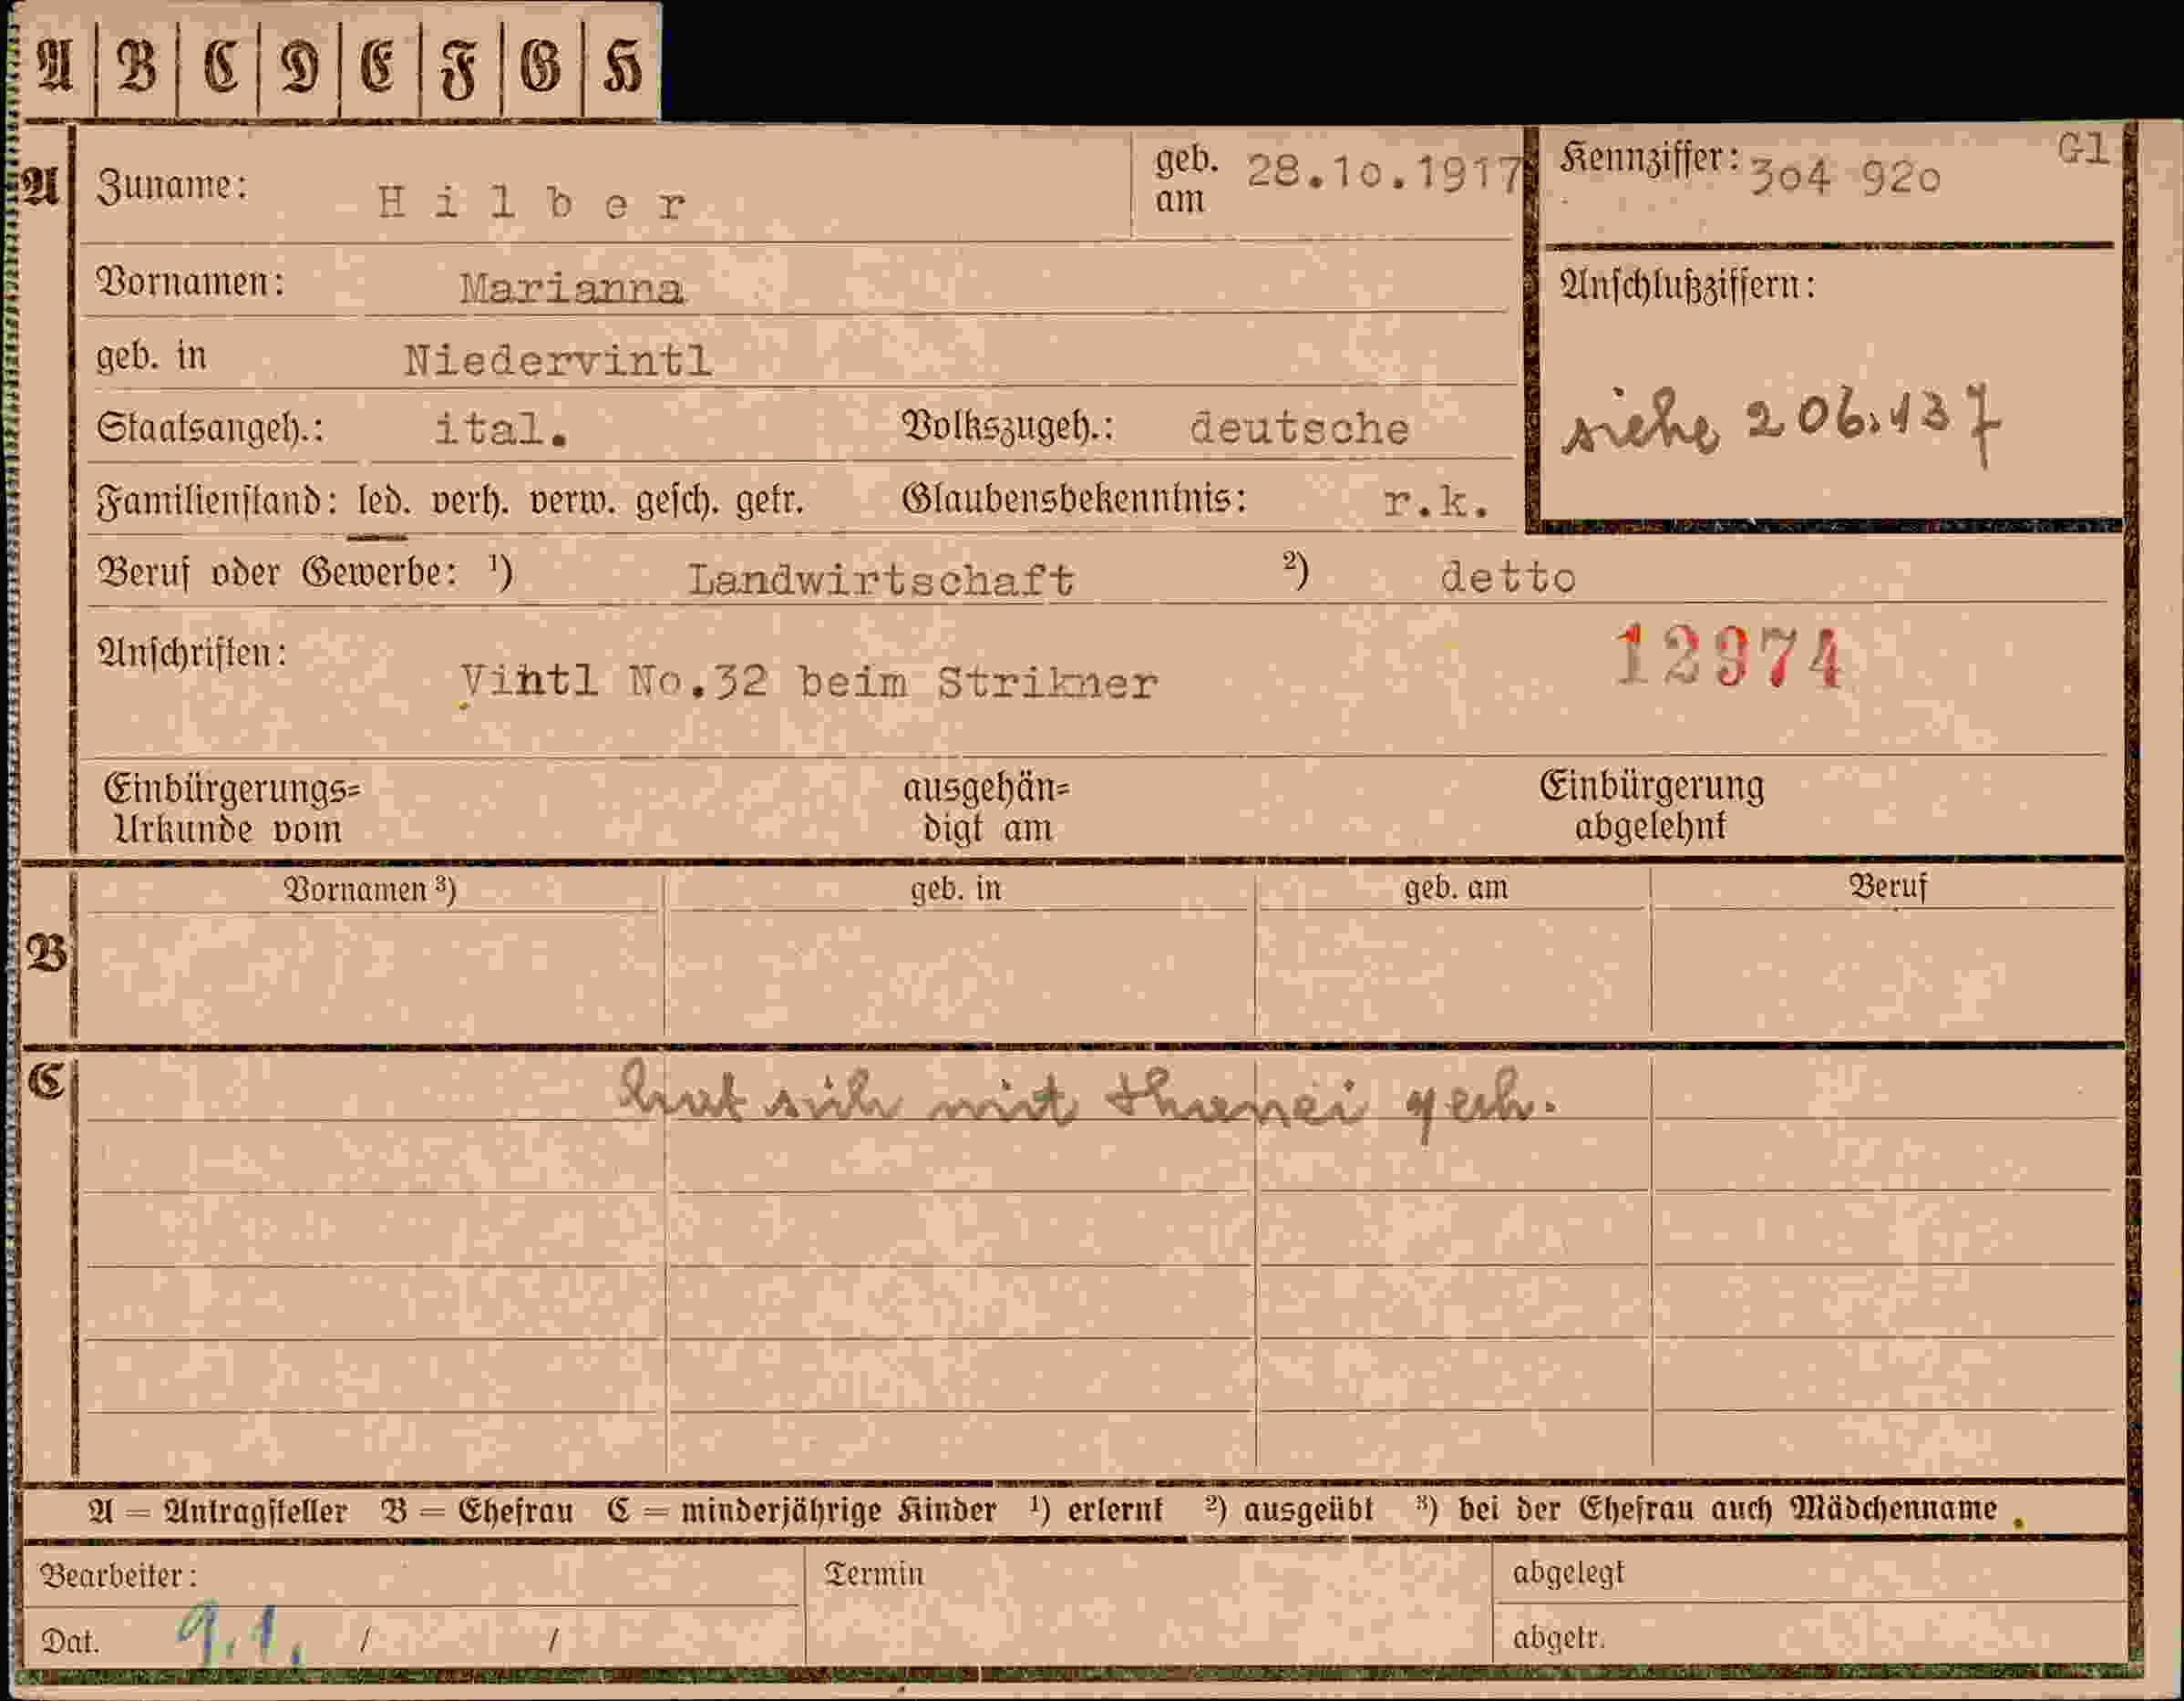 A B C D E F G H
A Zuname: Hilber geb. am 28.10.1917 Kennziffer: 304 920 Gl
Vornamen: Marianna Anschlußziffern:
geb. in Niedervintl
Staatsangeh.: ital. Volkszugeh.: deutsche siehe 206.137
Familienstand: led. verh. verw. gesch. getr. Glaubensbekenntnis: r.k.
Beruf oder Gewerbe: ¹) Landwirtschaft ²) detto
Anschriften: 12974
Vintl No.32 beim Strikner
Einbürgerungs= ausgehän= Einbürgerung
Urkunde vom digt am abgelehnt
Vornamen ³) geb. in geb. am Beruf
B
C hat sich mit verh.
A = Antragsteller B = Ehefrau C = minderjährige Kinder ¹) erlernt ²) ausgeübt ³) bei der Ehefrau auch Mädchenname
Bearbeiter: Termin abgelegt
Dat. 9.1. / / abgetr.